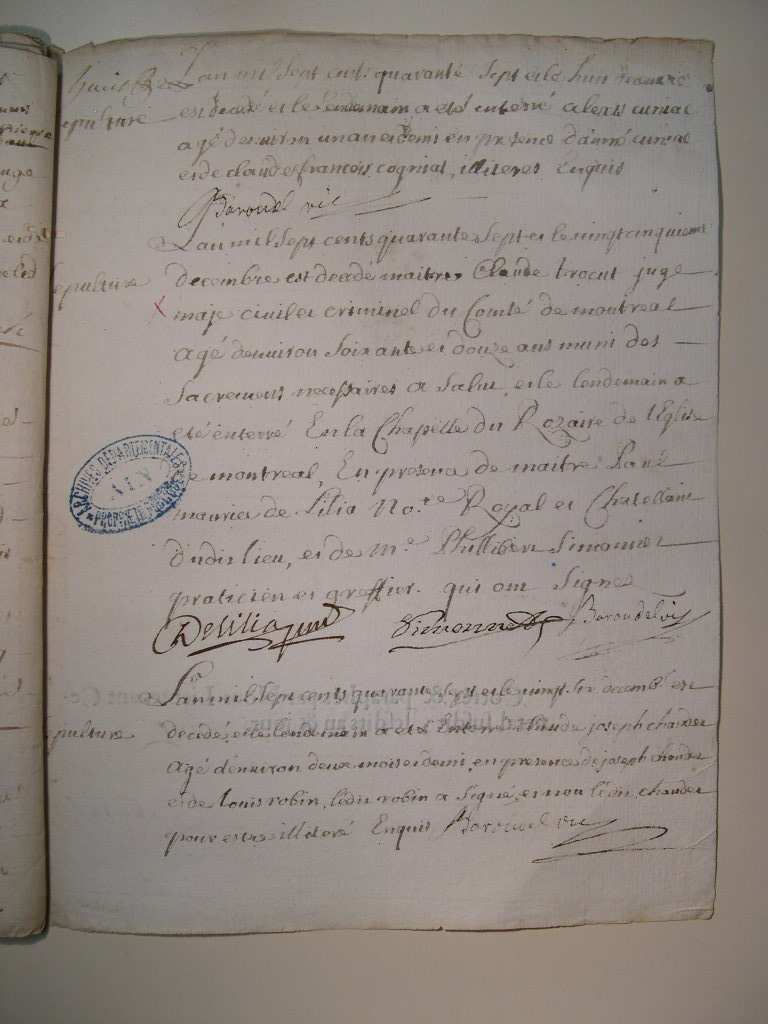 L'an mil sept cents quarante sept et le huit
est decedé et le lendemain a eté enterré
agé d'environ un an et demi en presence d'aimé
et de claude françois cogniat, illiteres Enquis
Baroudel vic
sepulture
L'an mil sept cents quarante sept et le vingt cinquieme
decembre est decedé maitre Claude trocut juge
maje civil et criminel du Comté de montreal
agé d'environ soixante et douze ans muni des
sacremens necessaires a salut, et le lendemain a
eté enterré En la Chapelle du Rozaire de l'Eglise
de montreal, En presence de maitre
de Lilia No.re Royal et Chatellain
dudit lieu, et de M.e Phillibert Simonnet
praticien et greffier qui ont signé
DeLilia Simonnet Baroudel vic
ARCHIVES DEPARTEMENTALES
AIN
PROPRIETE PUBLIQUE
sepulture
L'an mil sept cents quarante sept et le vingt six decemb. est
decedé, et le lendemain a eté enterré Claude joseph chandet
agé d'environ deux mois et demi, en presence de joseph chandet
et de Louis robin, ledit robin a signé, et non ledit chandet
pour estre illiteré Enquis Baroudel vic